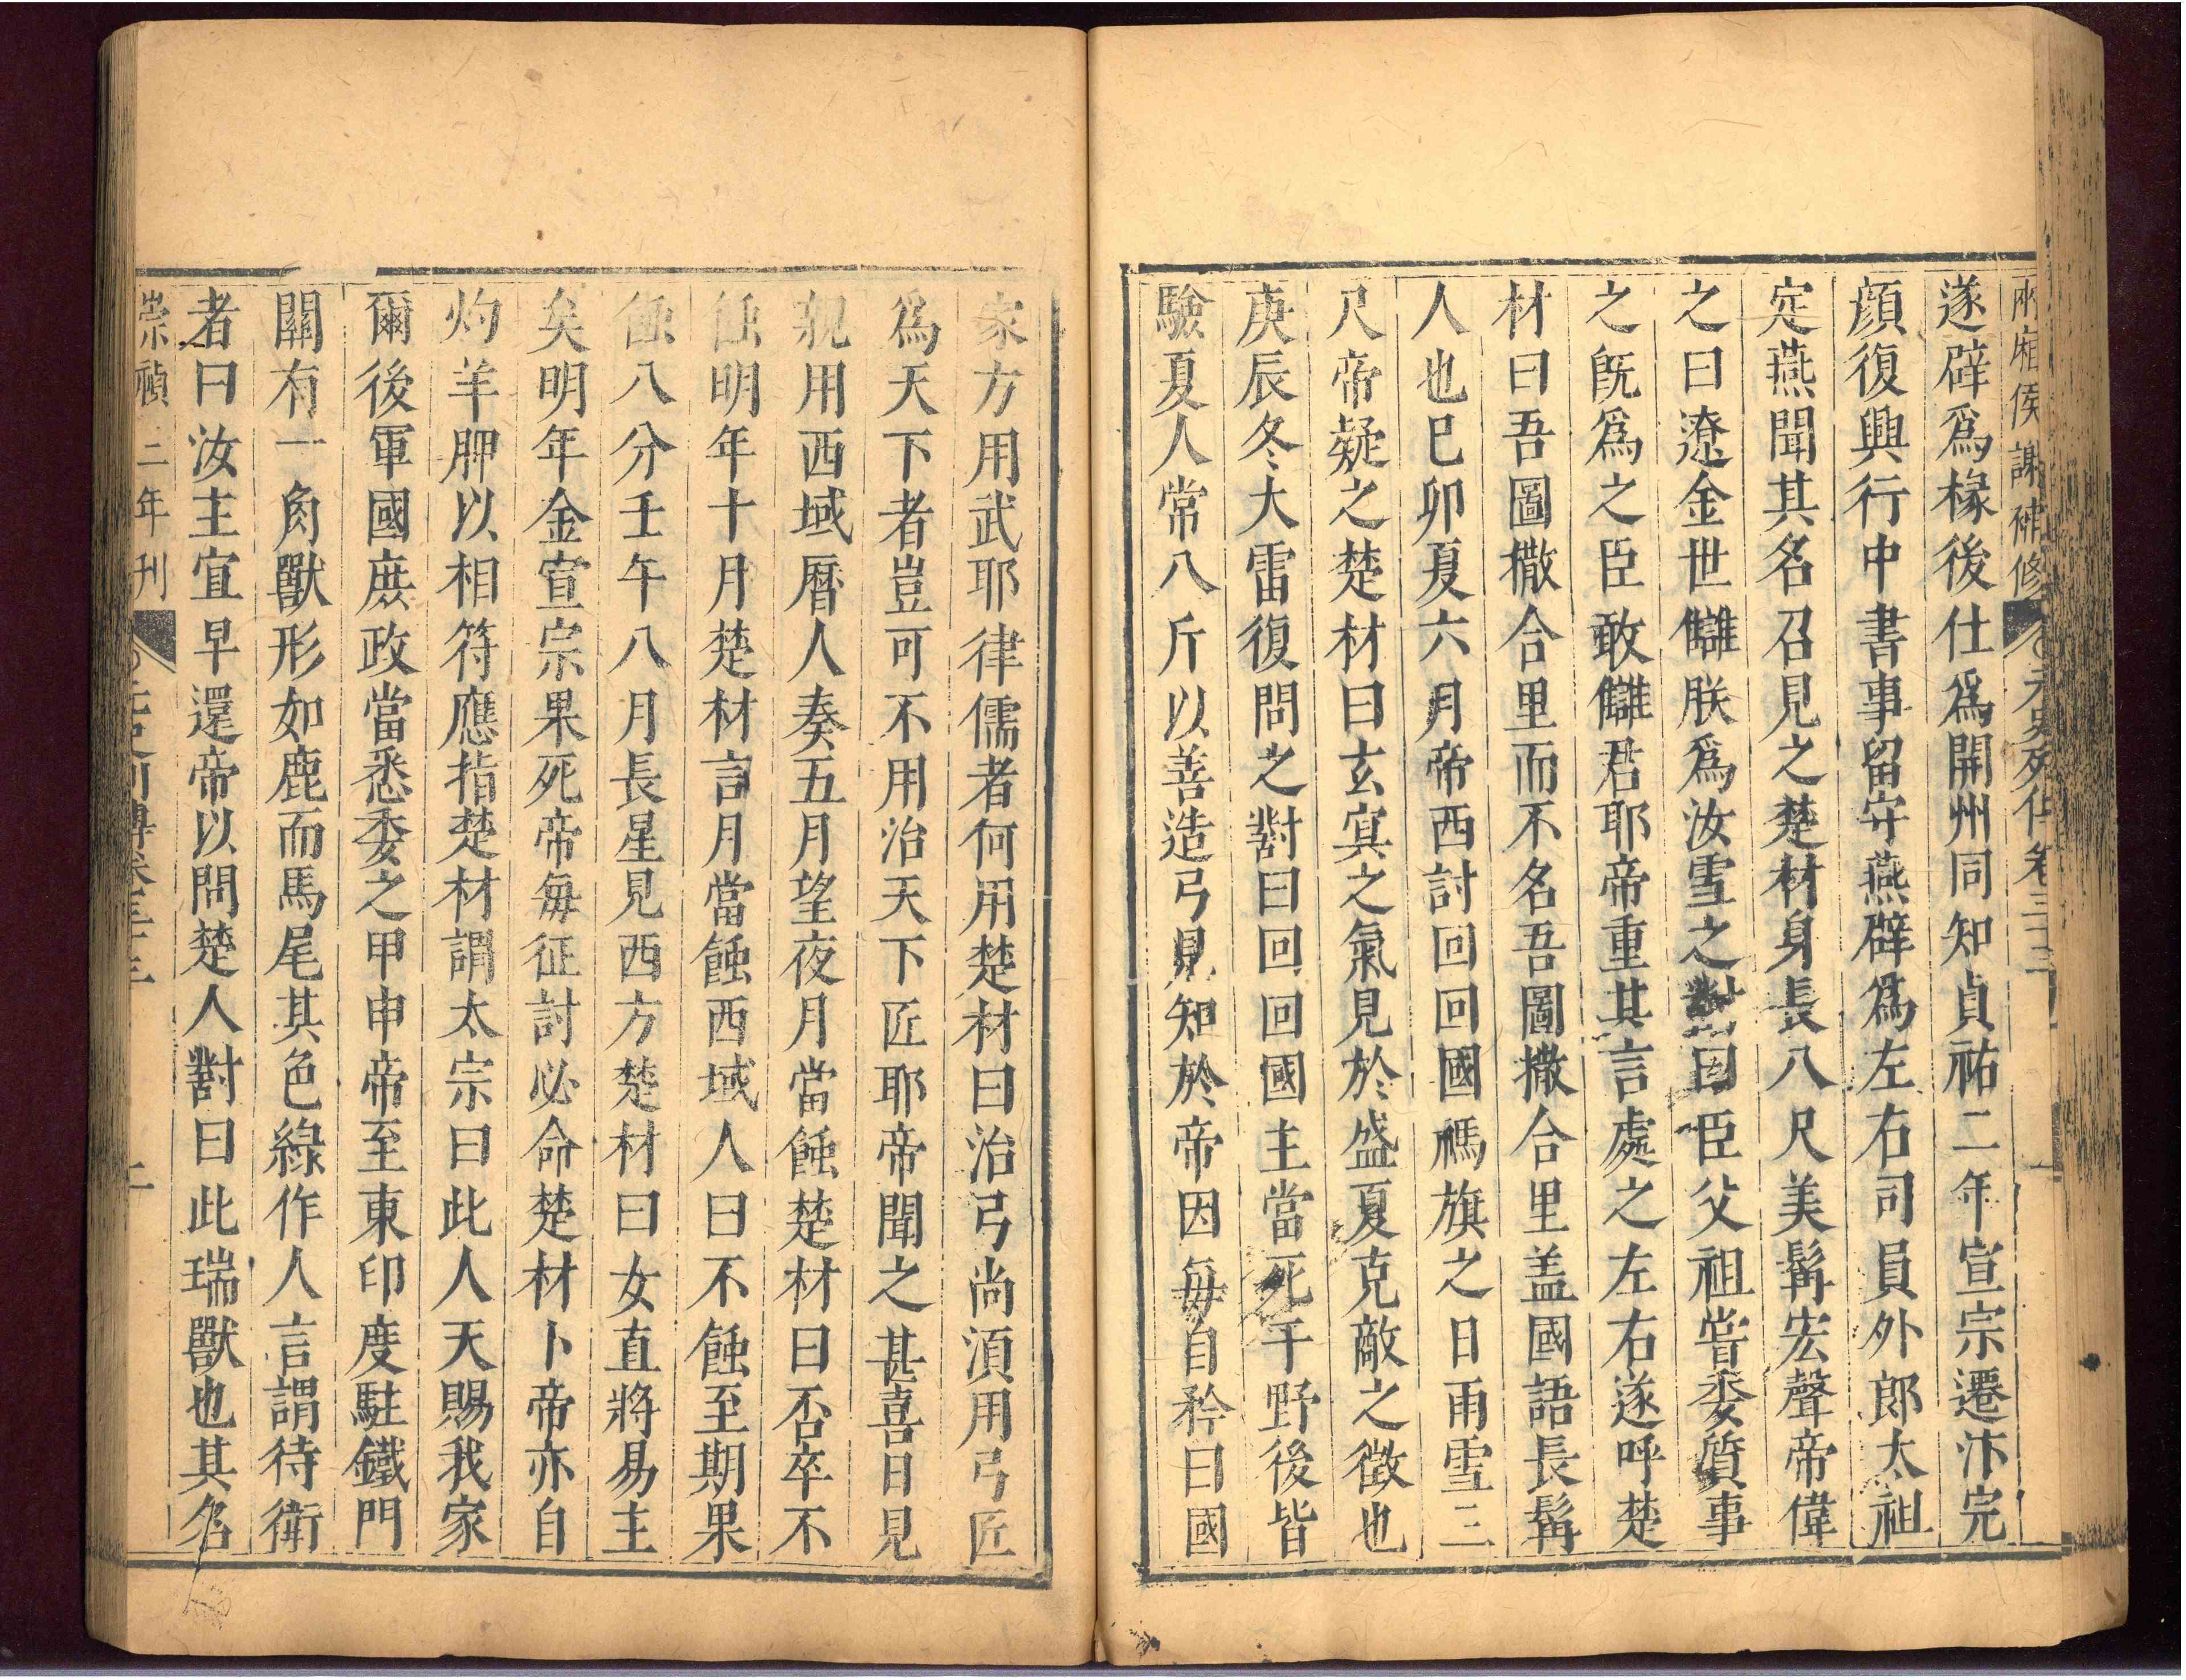 兩廂侯謝補修 元史列傳卷三十三 一
遂辟爲椽後仕爲開州同知貞祐二年宣宗遷汴完
顔復興行中書事留守燕辟爲左右司員外郎太祖
定燕聞其名召見之楚材身長八尺美髯宏聲帝偉
之曰遼金世讎朕爲汝雪之對曰臣父祖甞委質事
之旣爲之臣敢讎君耶帝重其言處之左右遂呼楚
材曰吾圖撒合里而不名吾圖撒合里盖國語長髯
人也巳卯夏六月帝西討回回國禡旗之日雨雪三
尺帝疑之楚材曰玄冥之氣見於盛夏克敵之徵也
庚辰冬大雷復問之對曰回回國主當死于野後皆
驗夏人常八斤以善造弓見知於帝因毎自矜曰國
家方用武耶律儒者何用楚材曰治弓尚湏用弓匠
爲天下者豈可不用治天下匠耶帝聞之甚喜日見
親用西域曆人奏五月望夜月當蝕楚材曰否卒不
蝕明年十月楚材言月當蝕西域人曰不蝕至期果
蝕八分壬午八月長星見西方楚材曰女直將易主
矣明年金宣宗果死帝毎征討必命楚材卜帝亦自
灼羊胛以相符應指楚材謂太宗曰此人天賜我家
爾後軍國庶政當悉委之甲申帝至東印度駐鐵門
關有一角獸形如鹿而馬尾其色綠作人言謂待衛
者曰汝主宜早還帝以問楚人對曰此瑞獸也其名
崇禎二年刊 元史列傳卷三十三 二